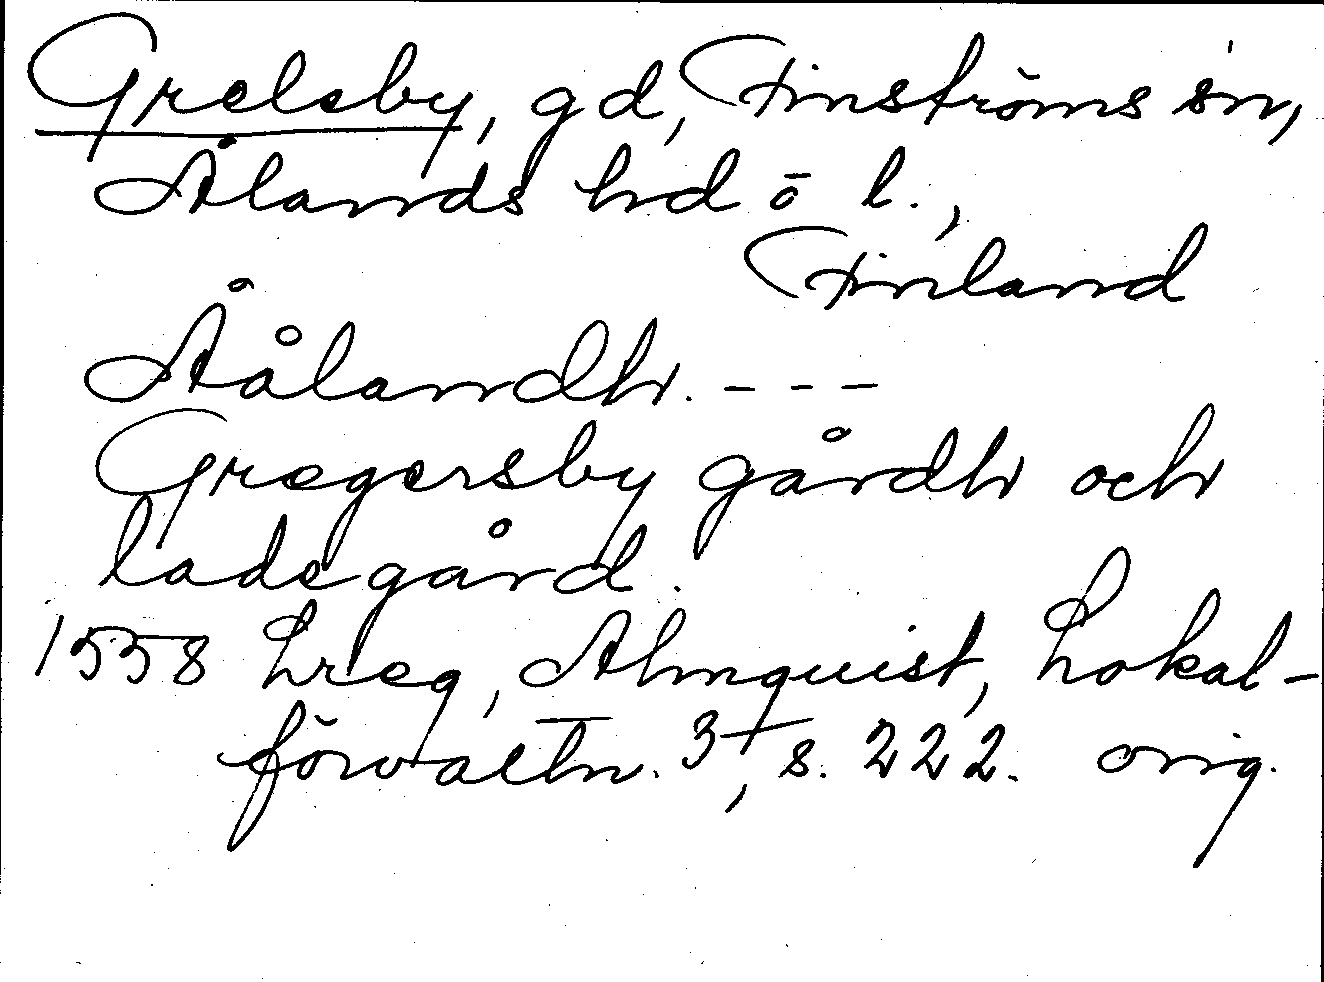 Grelsby, gd, Finströms sn,
Ålands hd o l.,
Finland
Åålandh. - - -
Gregersby gårdh och
ladegård.
1558 Lreg, Almquist, Lokal-
förvaltn. 3, s. 222. orig.